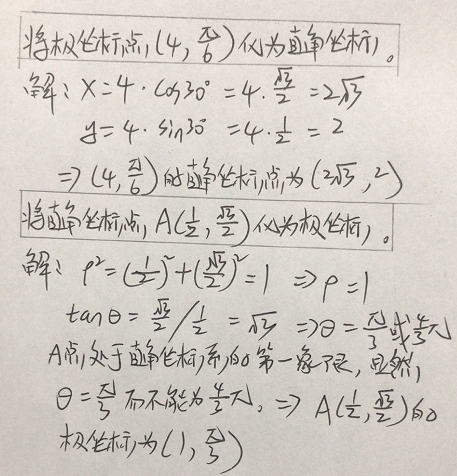 将极坐标点(4, π/6)化为直角坐标。
解: x=4·cos30°=4·√3/2=2√3
y=4·sin30°=4·1/2=2
⇒(4, π/6)的直角坐标点为(2√3, 2)
将直角坐标点A(1/2, √3/2)化为极坐标。
解: ρ²=(1/2)²+(√3/2)²=1 ⇒ρ=1
tanθ=√3/2 / 1/2 =√3 ⇒θ=π/3或4/3π
A点处于直角坐标系的第一象限, 显然,
θ=π/3而不能为4/3π, ⇒ A(1/2, √3/2)的
极坐标为(1, π/3)